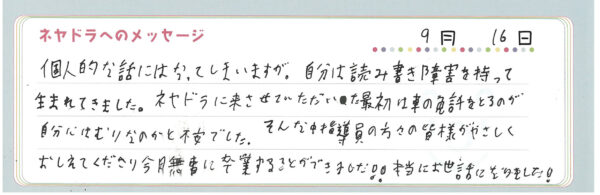 ネヤドラへのメッセージ 9月 16日
個人的な話にはなってしまいますが。自分は読み書き障害を持って
生まれてきました。ネヤドラに来させていただいた最初は車の免許をとるのが
自分にはむりなのかと不安でした。そんな中指導員の方々の皆様がやさしく
おしえてくださり今日無事に卒業することができました!!本当にお世話になりました!